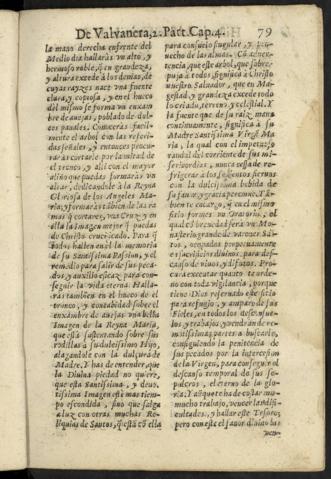 De Valvanera, 2. Part. Cap. 4.
79
la mano derecha enfrente del
Medio dia hallaràs vn alto, y
hermoso roble, q̃ en grandeza,
y altura excede à los demàs, de
cuyas rayzes nace vna fuente
clara, y copiosa, y en el hueco
del mismo se forma vn enxam-
bre de auejas, poblado de dul-
ces panales. Conoceràs facil-
mente el arbol con las referi-
das señales, y entonces procu-
raràs cortarle por la mitad de
el tronco, y alli con el mayor
aliño que puedas formaràs vn
altar, dedicandole à la Reyna
Gloriosa de los Angeles Ma-
ria; y formaràs tãbien de las ra-
mas q̃ cortares, vna Cruz, y en
ella la Imagen mejor q̃ puedas
del Christo crucificado. Para q̃
todos hallen en èl la memoria
de su Santissima Passion, y el
remedio para salir de sus peca-
dos, y auxilio eficaz para con-
seguir la vida eterna. Halla-
ràs tambien en el hueco de el
tronco, y contabidad sobre el
enxambre de auejas vna bella
Imagen de la Reyna Maria,
que està sustentando sobre sus
rodillas à su dulcissimo Hijo,
alagandole con la dulçura de
Madre. Y has de entender, que
la Diuina piedad no quiere,
que esta Santissima, y deuo-
tissima Imagen estè mas tiem-
po escondida, sino que salga
à luz con otras muchas Re-
liquias de Santos, q̃ està cõ ella
para consuelo singular, y pro-
uecho de las almas. Cõ aduer-
tencia, que este arbol, que sobre-
puja à todos significa à Christo
nuestro Saluador, que en Ma-
gestad, y grandeza excede todo
lo criado, terreno, y celestial. Y
la fuente que de su raiz mana
continuamente, significa à su
Madre Santissima Virgẽ Ma-
ria, la qual con el impetuoso
raudal del corriente de sus mi-
sericordias, nunca cessa de re-
frigerar à los sedientos fieles
con la dulcissima bebida de
su fauor, y gracia perenne. Y tã-
bien te encargo, q̃ en el mismo
sitio formes vn Oratorio, el
qual cõ breuedad serà vn Mo-
nasterio grande de varones Sã-
tos, ocupados perpetuamente
en sacrificios diuinos, para des-
canso de viuos, y difuntos. Pro-
cura executar quanto te orde-
no con toda vigilancia, porque
tiene Dios reservado este sitio
para refugio, y amparo de sus
Fieles, en todos los desconsue-
los, y trabajos, y vendràn de re-
motissimas partes à buscarlo,
consiguiendo la penitencia de
sus pecados por la intercession
de la Virgen, para conseguir el
descanso temporal de sus se-
pulcros, el eterno de la glo-
ria; Y aũque te ha de costar mu-
cho trabajo, vencer las difi-
cultades, y hallar este Tesoro;
pero con este el fauor diuino las